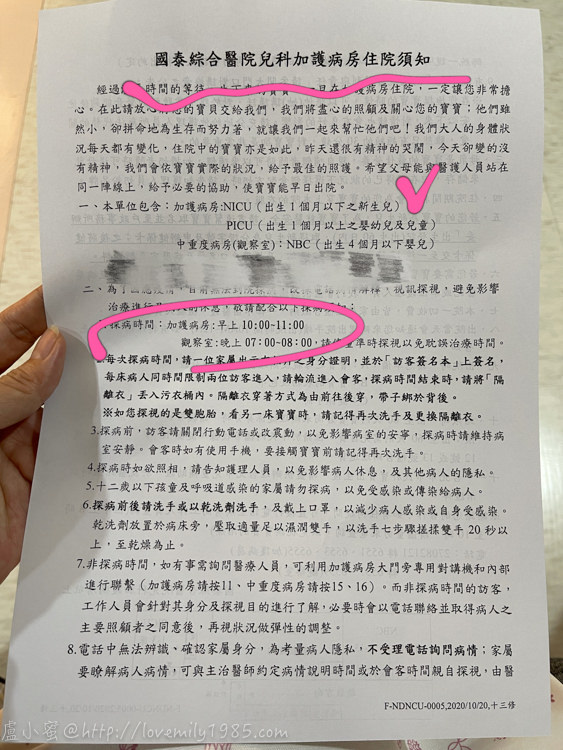 國泰綜合醫院兒科加護病房住院須知
經過 時間的等待 病房住院，一定讓您非常擔
心。在此請放心 的寶貝交給我們，我們將盡心的照顧及關心您的寶寶；他們雖
然小，卻拼命地為生存而努力著，就讓我們一起來幫忙他們吧！我們大人的身體狀
況每天都有變化，住院中的寶寶亦是如此，昨天還很有精神的哭鬧，今天卻變的沒
有精神，我們會依寶寶實際的狀況，給予最佳的照護。希望父母能與醫護人員站在
同一陣線上，給予必要的協助，使寶寶能早日出院。
一、本單位包含：加護病房:NICU（出生1個月以下之新生兒）
PICU（出生1個月以上之嬰幼兒及兒童）
中重度病房(觀察室)：NBC（出生4個月以下嬰兒）
二、為了 視訊探視，避免影響
治療進行 的休息，敬請配合以下
探病時間：加護病房:早上10:00-11:00
觀察室:晚上07:00-08:00，請 準時探視以免耽誤治療時間。
每次探病時間，請一位家屬出示 之身分證明，並於「訪客簽名本」上簽名，
每床病人同時間限制兩位訪客進入，請輪流進入會客，探病時間結束時，請將「隔
離衣」丟入污衣桶內。隔離衣穿著方式為由前往後穿，帶子綁於背後。
※如您探視的是雙胞胎，看另一床寶寶時，請記得再次洗手及更換隔離衣。
3.探病前，訪客請關閉行動電話或改震動，以免影響病室的安寧，探病時請維持病
室安靜。會客時如有使用手機，要接觸寶寶前請記得再次洗手。
4.探病時如欲照相，請告知護理人員，以免影響病人休息，及其他病人的隱私。
5.十二歲以下孩童及呼吸道感染的家屬請勿探病，以免受感染或傳染給病人。
6.探病前後請洗手或以乾洗劑洗手，及戴上口罩，以減少病人感染或自身受感染。
乾洗劑放置於病床旁，壓取適量足以濕潤雙手，以洗手七步驟搓揉雙手20秒以
上，至乾燥為止。
7.非探病時間，如有事需詢問醫療人員，可利用加護病房大門旁專用對講機和內部
進行聯繫（加護病房請按11、中重度病房請按15、16）。而非探病時間的訪客，
工作人員會針對其身分及探視目的進行了解，必要時會以電話聯絡並取得病人之
主要照顧者之同意後，再視狀況做彈性的調整。
8.電話中無法辨識、確認家屬身分，為考量病人隱私，不受理電話詢問病情；家屬
要瞭解病人病情，可與主治醫師約定病情說明時間或於會客時間親自探視，由醫
F-NDNCU-0005,2020/10/20,十三修
盧小蜜@http://lovemily1985.com